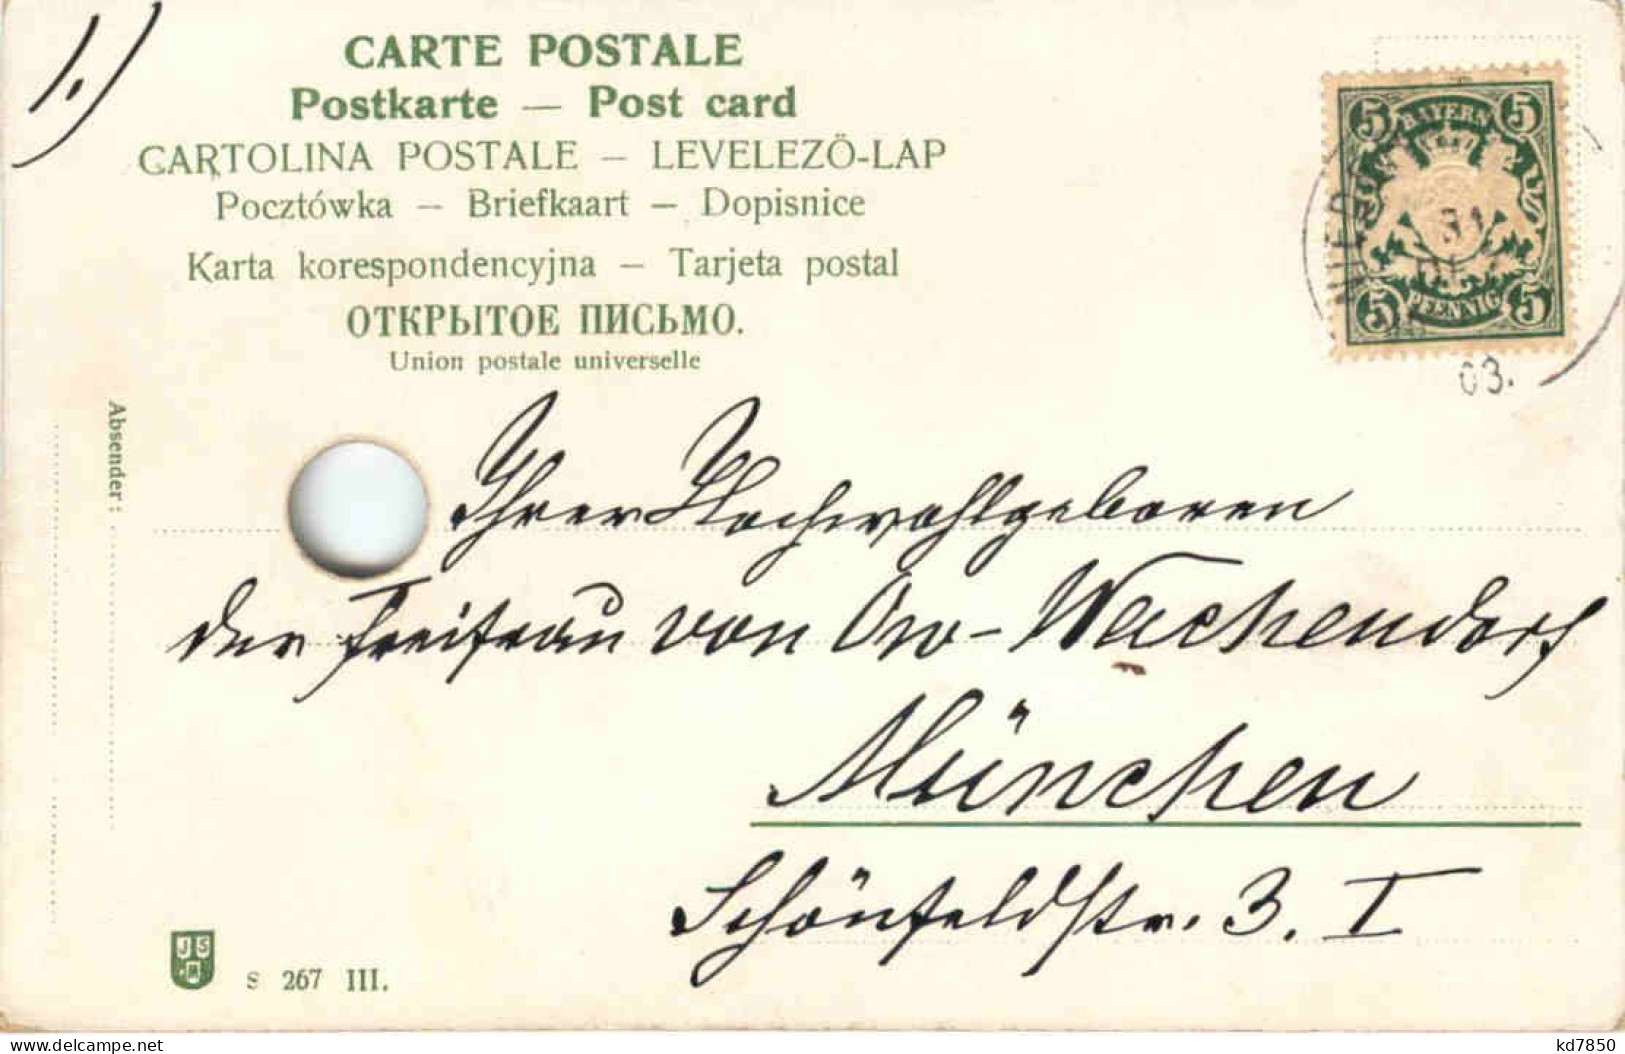 1.)
CARTE POSTALE
Postkarte — Post card
CARTOLINA POSTALE — LEVELEZÖ-LAP
Pocztówka — Briefkaart — Dopisnice
Karta korespondencyjna — Tarjeta postal
ОТКРЫТОЕ ПИСЬМО.
Union postale universelle
5 BAYERN 5
31
DEZ
5 PFENNIG 5
03.
Absender:
Ihrer Hochwohlgeboren
der Freifrau von Ow-Wachendorf
München
Schönfeldstr. 3. I
JSM
S 267 III.
www.delcampe.net
kd7850